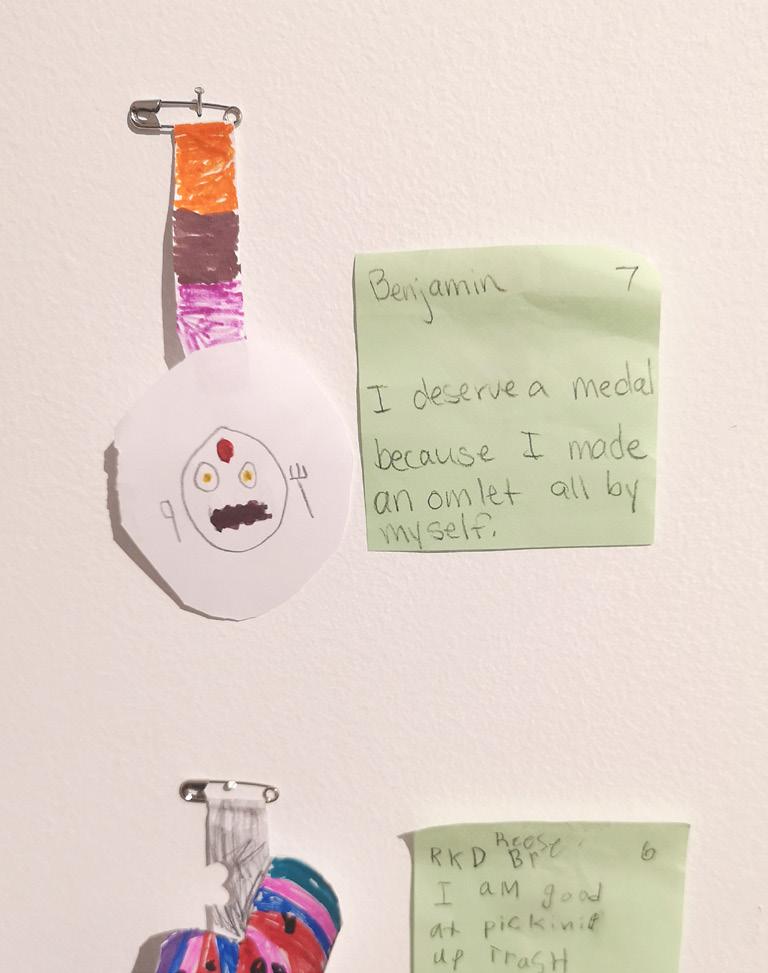 Benjamin 7
I deserve a medal
because I made
an omlet all by
myself.
Reese
RKD Br 6
I AM good
at
up TrasH